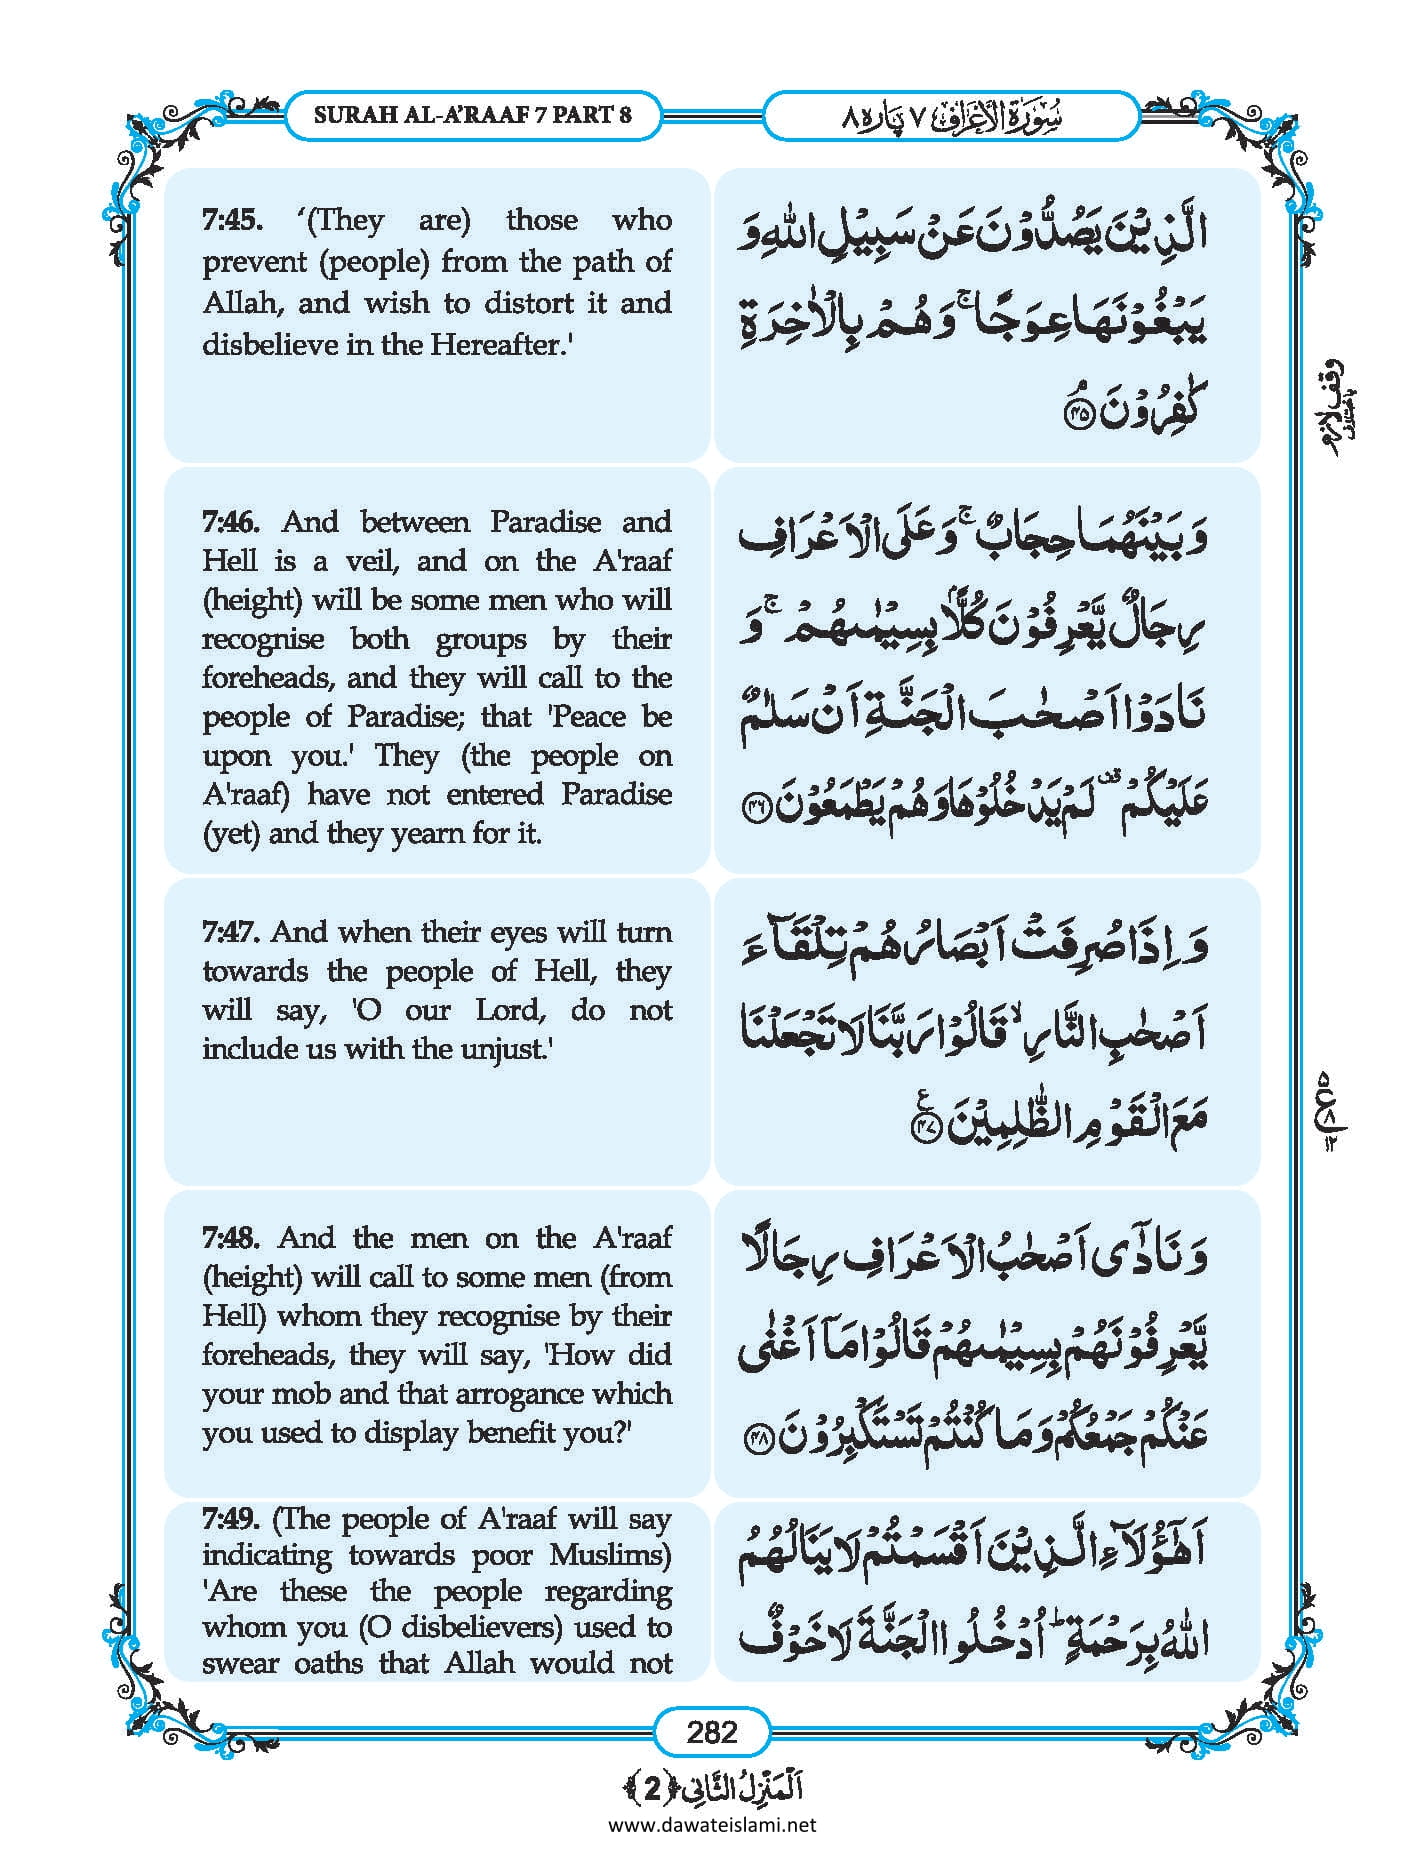 SURAH AL-A’RAAF 7 PART 8
سُوۡرَۃُ الۡاَعۡرَاف ۷ پارہ ۸
7:45. ‘(They are) those who
prevent (people) from the path of
Allah, and wish to distort it and
disbelieve in the Hereafter.'
الَّذِيۡنَ يَصُدُّوۡنَ عَنۡ سَبِيۡلِ اللّٰهِ وَ
يَبۡغُوۡنَهَا عِوَجًا ۚ وَهُمۡ بِالۡاٰخِرَةِ
كٰفِرُوۡنَ ۘ ﴿۴۵﴾
وقف لازم
7:46. And between Paradise and
Hell is a veil, and on the A'raaf
(height) will be some men who will
recognise both groups by their
foreheads, and they will call to the
people of Paradise; that 'Peace be
upon you.' They (the people on
A'raaf) have not entered Paradise
(yet) and they yearn for it.
وَ بَيۡنَهُمَا حِجَابٌ ۚ وَ عَلَى الۡاَعۡرَافِ
رِجَالٌ يَّعۡرِفُوۡنَ كُلًّاۢ بِسِيۡمٰىهُمۡ ۚ وَ
نَادَوۡا اَصۡحٰبَ الۡجَنَّةِ اَنۡ سَلٰمٌ
عَلَيۡكُمۡ ۟ لَمۡ يَدۡخُلُوۡهَا وَهُمۡ يَطۡمَعُوۡنَ ﴿۴۶﴾
7:47. And when their eyes will turn
towards the people of Hell, they
will say, 'O our Lord, do not
include us with the unjust.'
وَ اِذَا صُرِفَتۡ اَبۡصَارُهُمۡ تِلۡقَآءَ
اَصۡحٰبِ النَّارِ ۙ قَالُوۡا رَبَّنَا لَا تَجۡعَلۡنَا
مَعَ الۡقَوۡمِ الظّٰلِمِيۡنَ ﴿۴۷﴾ ع
۵
ع ۸
۱۲
7:48. And the men on the A'raaf
(height) will call to some men (from
Hell) whom they recognise by their
foreheads, they will say, 'How did
your mob and that arrogance which
you used to display benefit you?'
وَ نَادٰۤى اَصۡحٰبُ الۡاَعۡرَافِ رِجَالًا
يَّعۡرِفُوۡنَهُمۡ بِسِيۡمٰىهُمۡ قَالُوۡا مَاۤ اَغۡنٰى
عَنۡكُمۡ جَمۡعُكُمۡ وَمَا كُنۡتُمۡ تَسۡتَكۡبِرُوۡنَ ﴿۴۸﴾
7:49. (The people of A'raaf will say
indicating towards poor Muslims)
'Are these the people regarding
whom you (O disbelievers) used to
swear oaths that Allah would not
اَهٰۤؤُلَآءِ الَّذِيۡنَ اَقۡسَمۡتُمۡ لَا يَنَالُهُمُ
اللّٰهُ بِرَحۡمَةٍ ؕ اُدۡخُلُوا الۡجَنَّةَ لَا خَوۡفٌ
282
اَلۡمَنۡزِلُ الثَّانِی ﴿2﴾
www.dawateislami.net